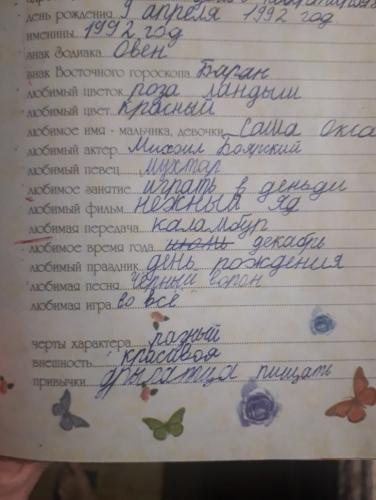 день рождения 9 апреля 1992 год
именины 1992 год
знак Зодиака Овен
знак Восточного гороскопа Баран
любимый цветок роза ландыш
любимый цвет красный
любимое имя - мальчика, девочки Саша Окса
любимый актер Михаил Боярский
любимый певец Мухтар
любимое занятие играть в деньди
любимый фильм нежный яд
любимая передача каламбур
любимое время года июль декабрь
любимый праздник день рождения
любимая песня чёрный ворон
любимая игра во всё
черты характера разный
внешность красивая
привычки пищать